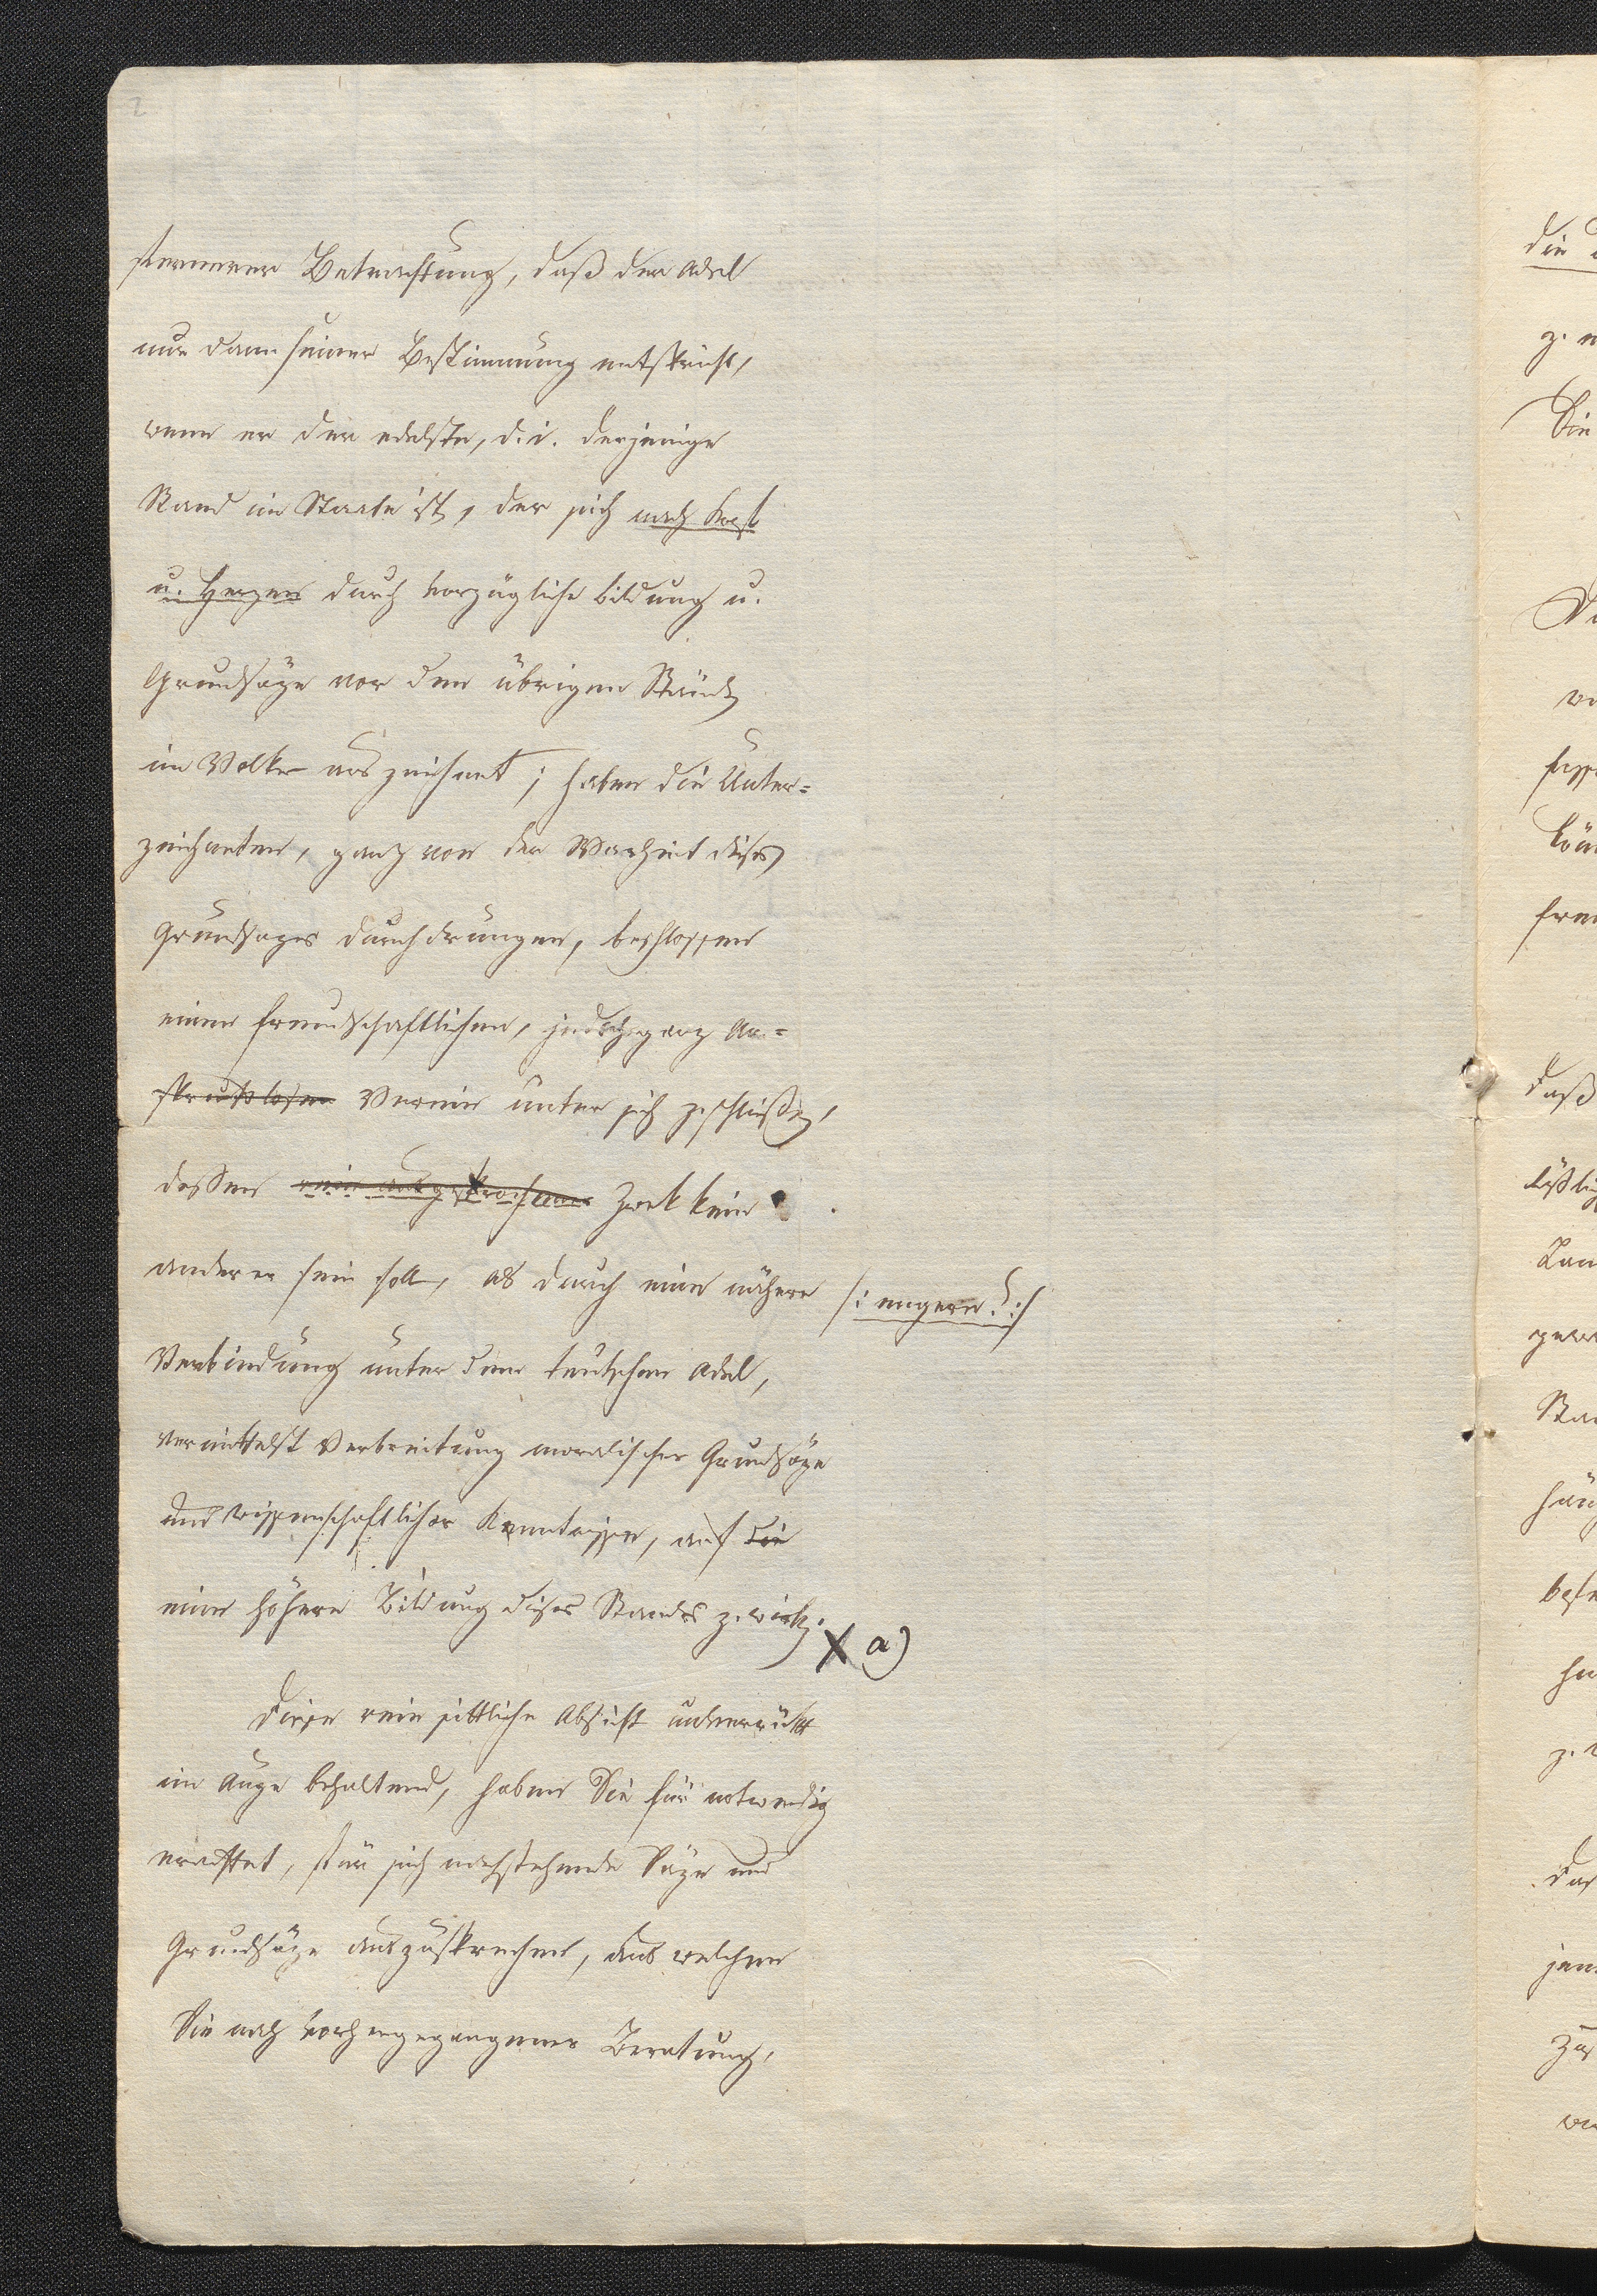 2
Betrachtung, daß der Adel
nur dann seiner Bestimmung entspricht,
wenn er der edelste, d. i. derjenige
Stand im Staate ist, der sich nach Kopf
u. Herzen durch vorzügliche Bildung u.
Grundsäze vor den übrigen Ständen
im Volke auszeichnet; haben die Unter=
zeichneten, ganz von der Warheit dieses
Grundsazes durchdrungen, beschlossen
einen freundschaftlichen, jedoch ganz An=
spruchslosen Verein unter sich zu schließen,
dessen rein ausgesprochener Zwek kein
anderer sein soll, als durch eine nähere
/: engere? :/
Verbindung unter dem teutschen Adel,
vermittelst Verbreitung moralischer Grundsäze
und wissenschaftlicher Kenntnisse, auf die
eine höhere Bildung dieses Standes zu wirken.
X a)
Diese rein sittliche Absicht unverrükt
im Auge behaltend, haben Sie für notwendig
erachtet, für sich nachstehende Säze und
Grundsäze auszusprechen, aus welchen
Sie nach vorhergegangener Beratung,
die
z.
Die
daß